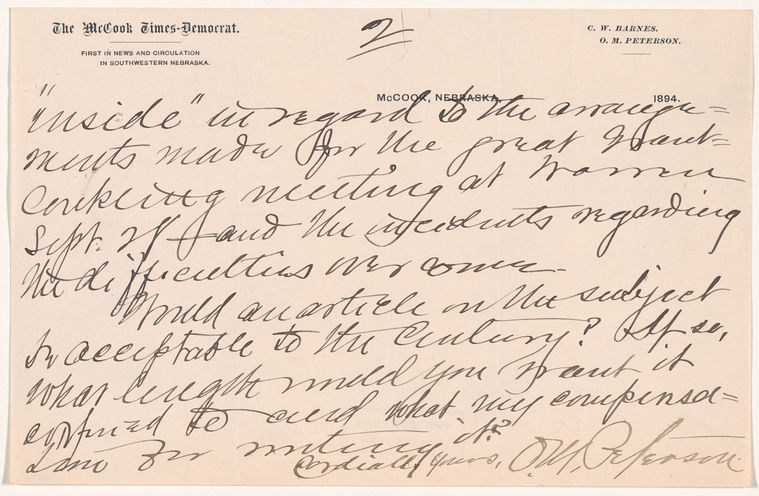 The McCook Times-Democrat.
FIRST IN NEWS AND CIRCULATION
IN SOUTHWESTERN NEBRASKA.
2
C. W. BARNES.
O. M. PETERSON.
McCOOK, NEBRASKA, 1894.
"inside" in regard to the arrange=
ments made for the great Grant=
Conkling meeting at Warren
Sept. 28 – and the incidents regarding
the difficulties overcome.
Would an article on the subject
be acceptable to the Century? If so,
what length would you want it
confined to and what my compensa=
tion for writing it?
Cordially yours, O.M. Peterson